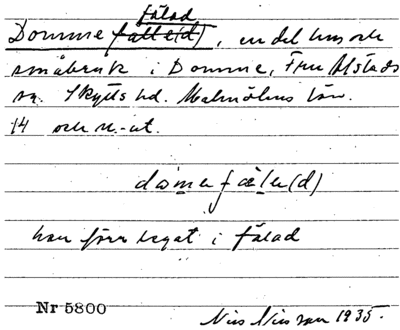 fälad
Domme fälle(d), en del hus och
småbruk i Domme, Fru Alstads
sn. Skytts hd. Malmöhus län.
14 och n.-ut.
domefæle(d)
har förr legat i fälad
Nr 5800
Nils Nilsson 1935.